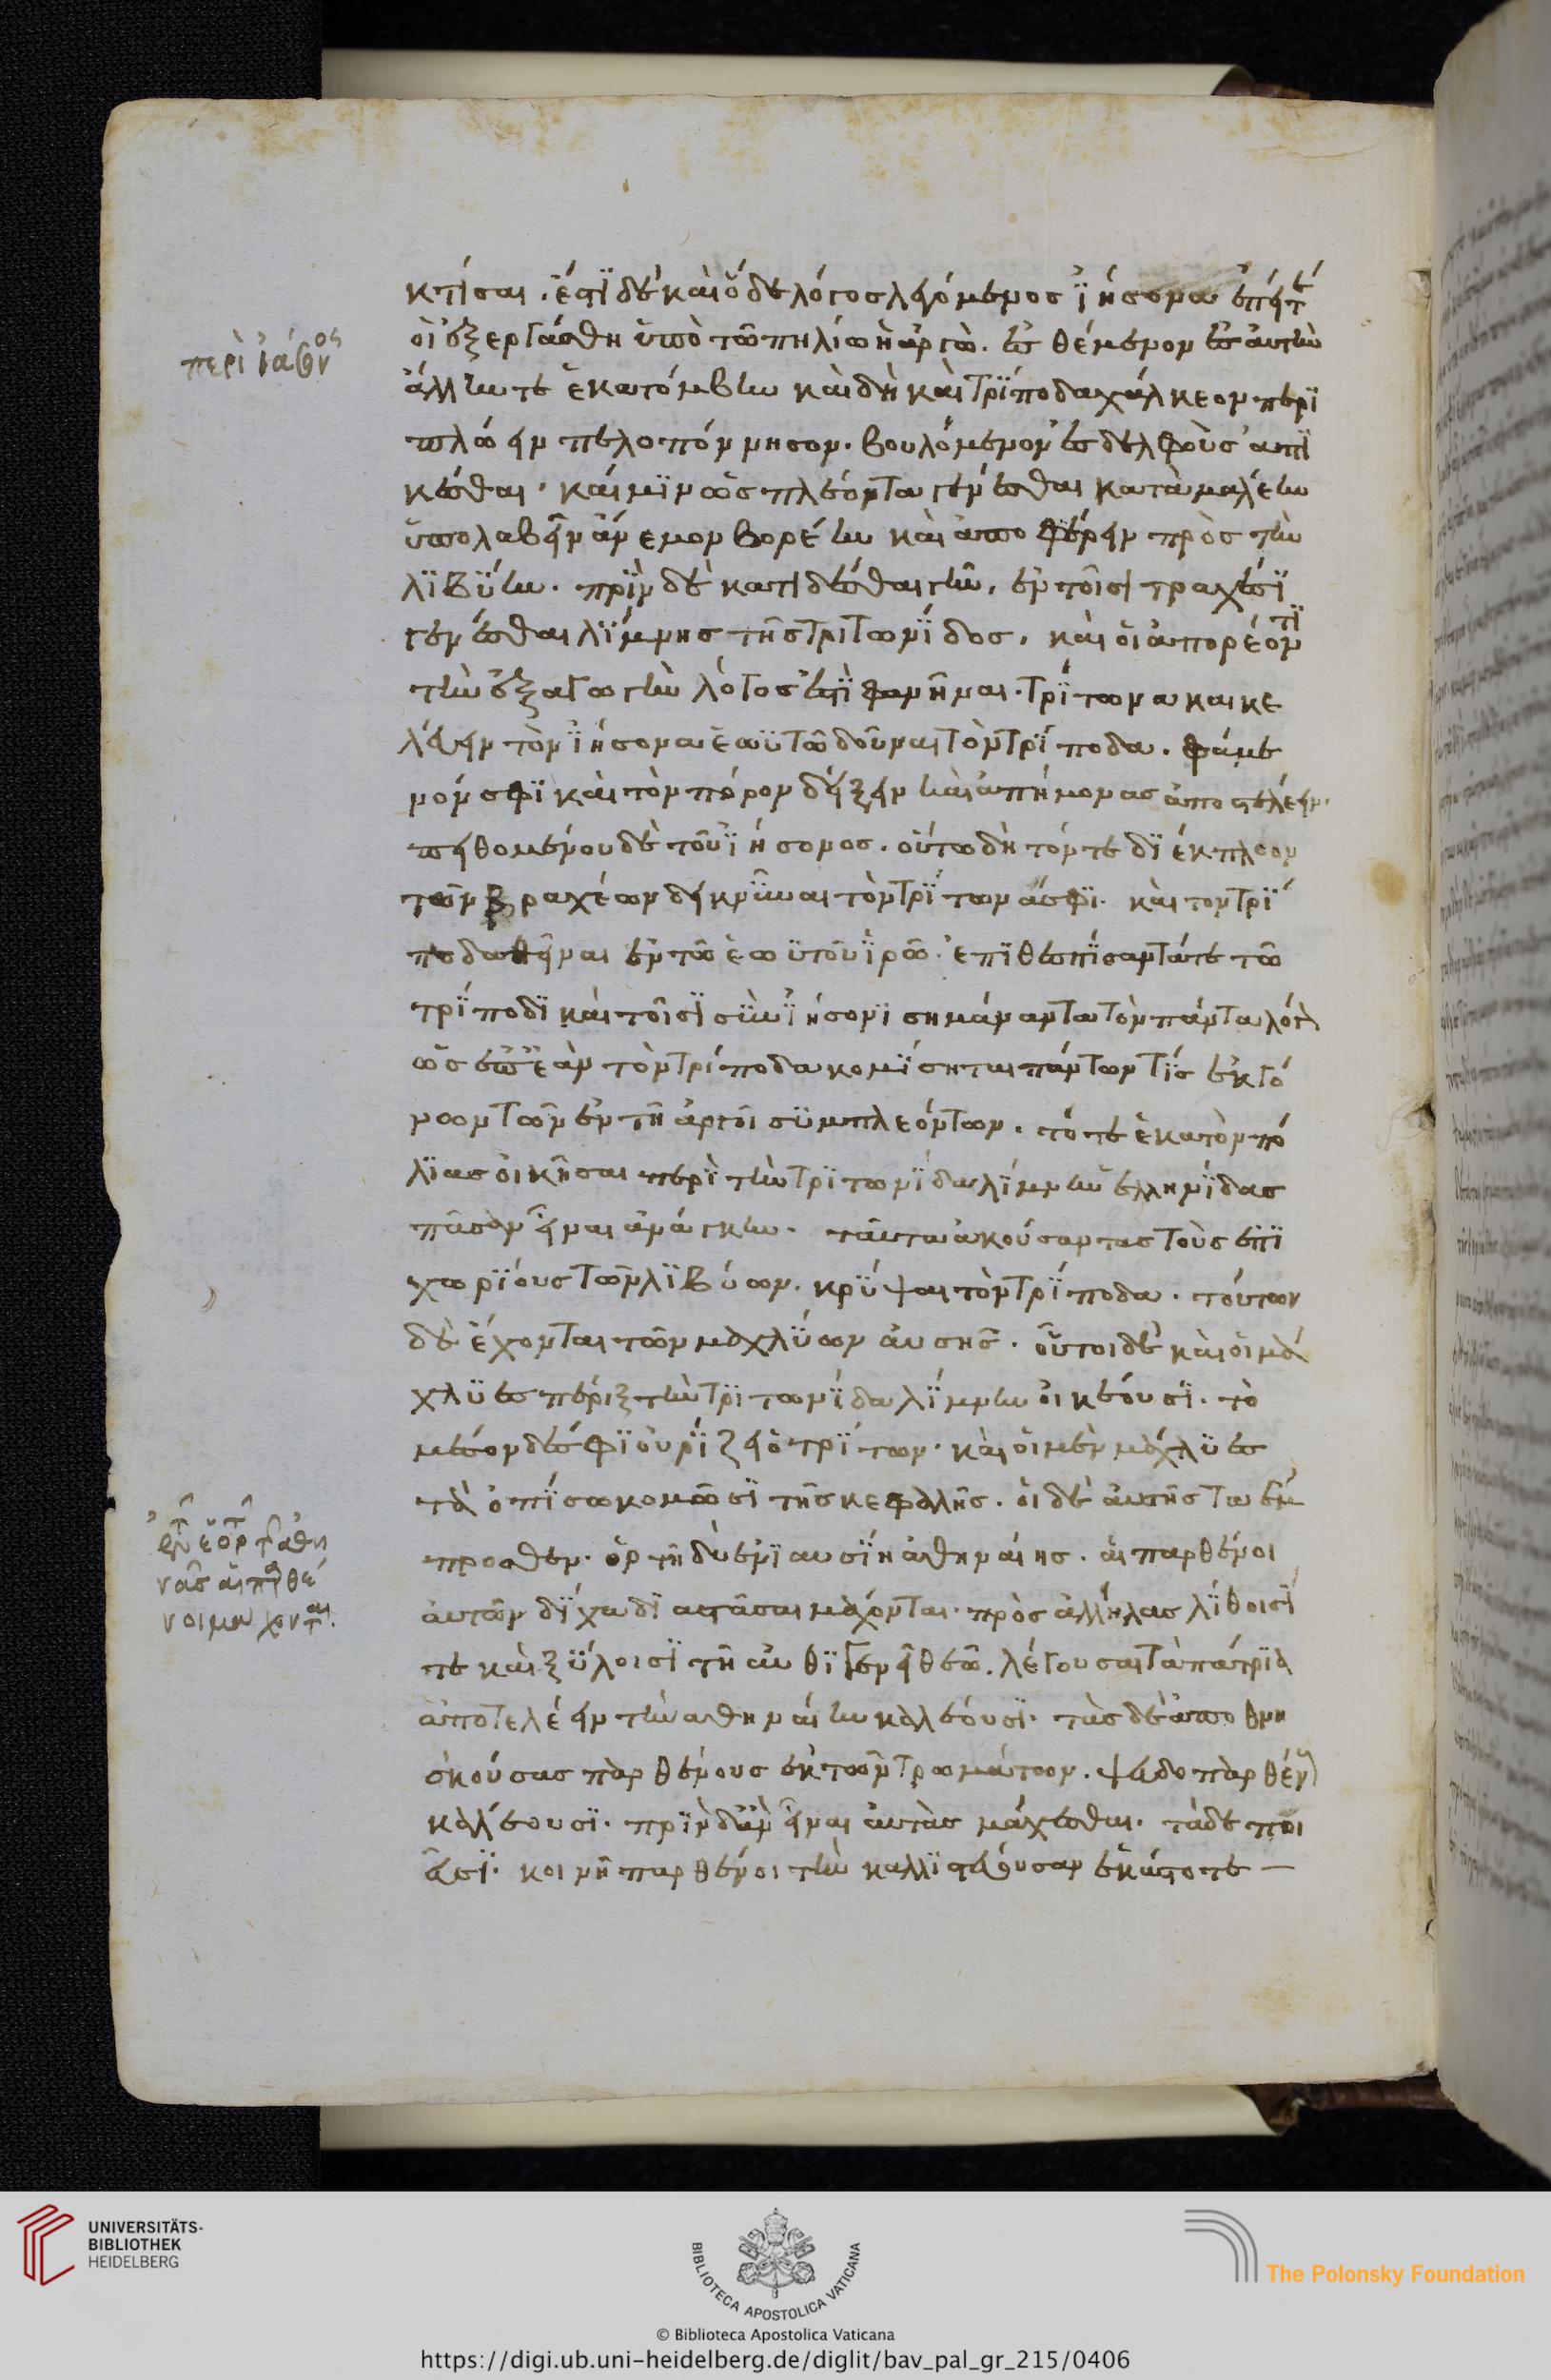 κτίσαι. ἔστι δὲ καὶ ὅδε λόγος λεγόμενος ἰήσονα ἐπεί τέ
οἱ ἐξεργάσθη ὑπὸ τῶ πηλίω ἡ ἀργὼ. ἐσθέμενον ἐς αὐτὴν
ἄλλην τε ἑκατόμβην καὶ δὴ καὶ τρίποδα χάλκεον περι
πλώειν πελοπόννησον. βουλόμενον ἐς δελφοὺς ἀπι
κέσθαι. καί μιν ὡς πλέοντα γενέσθαι κατὰ μαλέην
ὑπολαβεῖν ἄνεμον βορέην καὶ ἀποφέρειν πρὸς τὴν
λιβύην. πρὶν δὲ κατιδέσθαι γῆν, ἐν τοῖσι τραχέσι
γενέσθαι λίμνης τῆς τριτωνίδος, καὶ οἱ ἀπορέοντι
τὴν ἐξαγωγὴν λόγος ἐστὶ φανῆναι τρίτωνα και κε
λεύειν τὸν ἰήσονα ἑωυτῶ δοῦναι τὸν τρίποδα. φάμε
νόν σφι καὶ τὸν πόρον δείξειν καὶ ἀπήμονας ἀποστελέειν.
πειθομένου δὲ τοῦ ἰήσονος. οὕτω δὴ τόν τε διέκπλοον
τῶν βραχέων δεικνῦναι τὸν τρίτωνά σφι. καὶ τον τρί
ποδα θεῖναι ἐν τῶ ἑωυτοῦ ἱρῶ. ἐπιθεσπίσαντά τε τῶ
τρίποδι καὶ τοῖσι σὺν ἰήσονι σημάναντα τὸν πάντα λόγον
ὡς ἐπεὰν τὸν τρίποδα κομίσηται πάντων τίς ἐκγό
νων τῶν ἐν τῆ ἀργοῖ συμπλεόντων. τότε ἑκατὸν πό
λιας οἰκῆσαι περὶ τὴν τριτωνίδα λίμνην ἑλληνίδας
πᾶσαν εἶναι ἀνάγκην. ταῦτα ἀκούσαντας τοὺς ἐπι
χωρίους τῶν λιβύων. κρύψαι τὸν τρίποδα. τούτων
δὲ ἔχονται τῶν μαχλύων αὐσῆς. οὗτοι δὲ καὶ οἱ μά
χλυες πέριξ τὴν τριτωνίδα λίμνην οἰκέουσι. τὸ
μέσον δέ σφι οὐρίζει ὁ τρίτων. καὶ οἱ μὲν μάχλυες
τὰ ὀπίσω κομῶσι τῆς κεφαλῆς. οἱ δὲ αὐτῆς τα ἔμ
προσθεν. ὁρτῆ δὲ ἐνιαυσίη ἀθηναίης. αἱ παρθένοι
αὐτῶν δίχα διαστᾶσαι μάχονται πρὸς ἀλλήλας λίθοισί
τε καὶ ξύλοισι τῆ αὐθιγενεῖ θεῶ. λέγουσαι τὰ πάτρια
ἀποτελέειν τὴν αθηναίην καλέουσι. τὰς δὲ ἀποθνη
σκούσας παρθένους ἐκ τῶν τρωμάτων. ψευδοπαρθένους
καλέουσι. πρὶν δ' ἂν εἶναι αὐτὰς μάχεσθαι. τάδε ποι
εῦσι. κοινῆ παρθένοι τὴν καλλιστεύουσαν ἑκάστοτε
περὶ ἰάσονος
ἐν τῆ ἑορτῆ τῆς ἀθη
νᾶς αἱ παρθέ
νοι μάχονται.
UNIVERSITÄTS-
BIBLIOTHEK
HEIDELBERG
BIBLIOTECA APOSTOLICA VATICANA
The Polonsky Foundation
© Biblioteca Apostolica Vaticana
https://digi.ub.uni-heidelberg.de/diglit/bav_pal_gr_215/0406